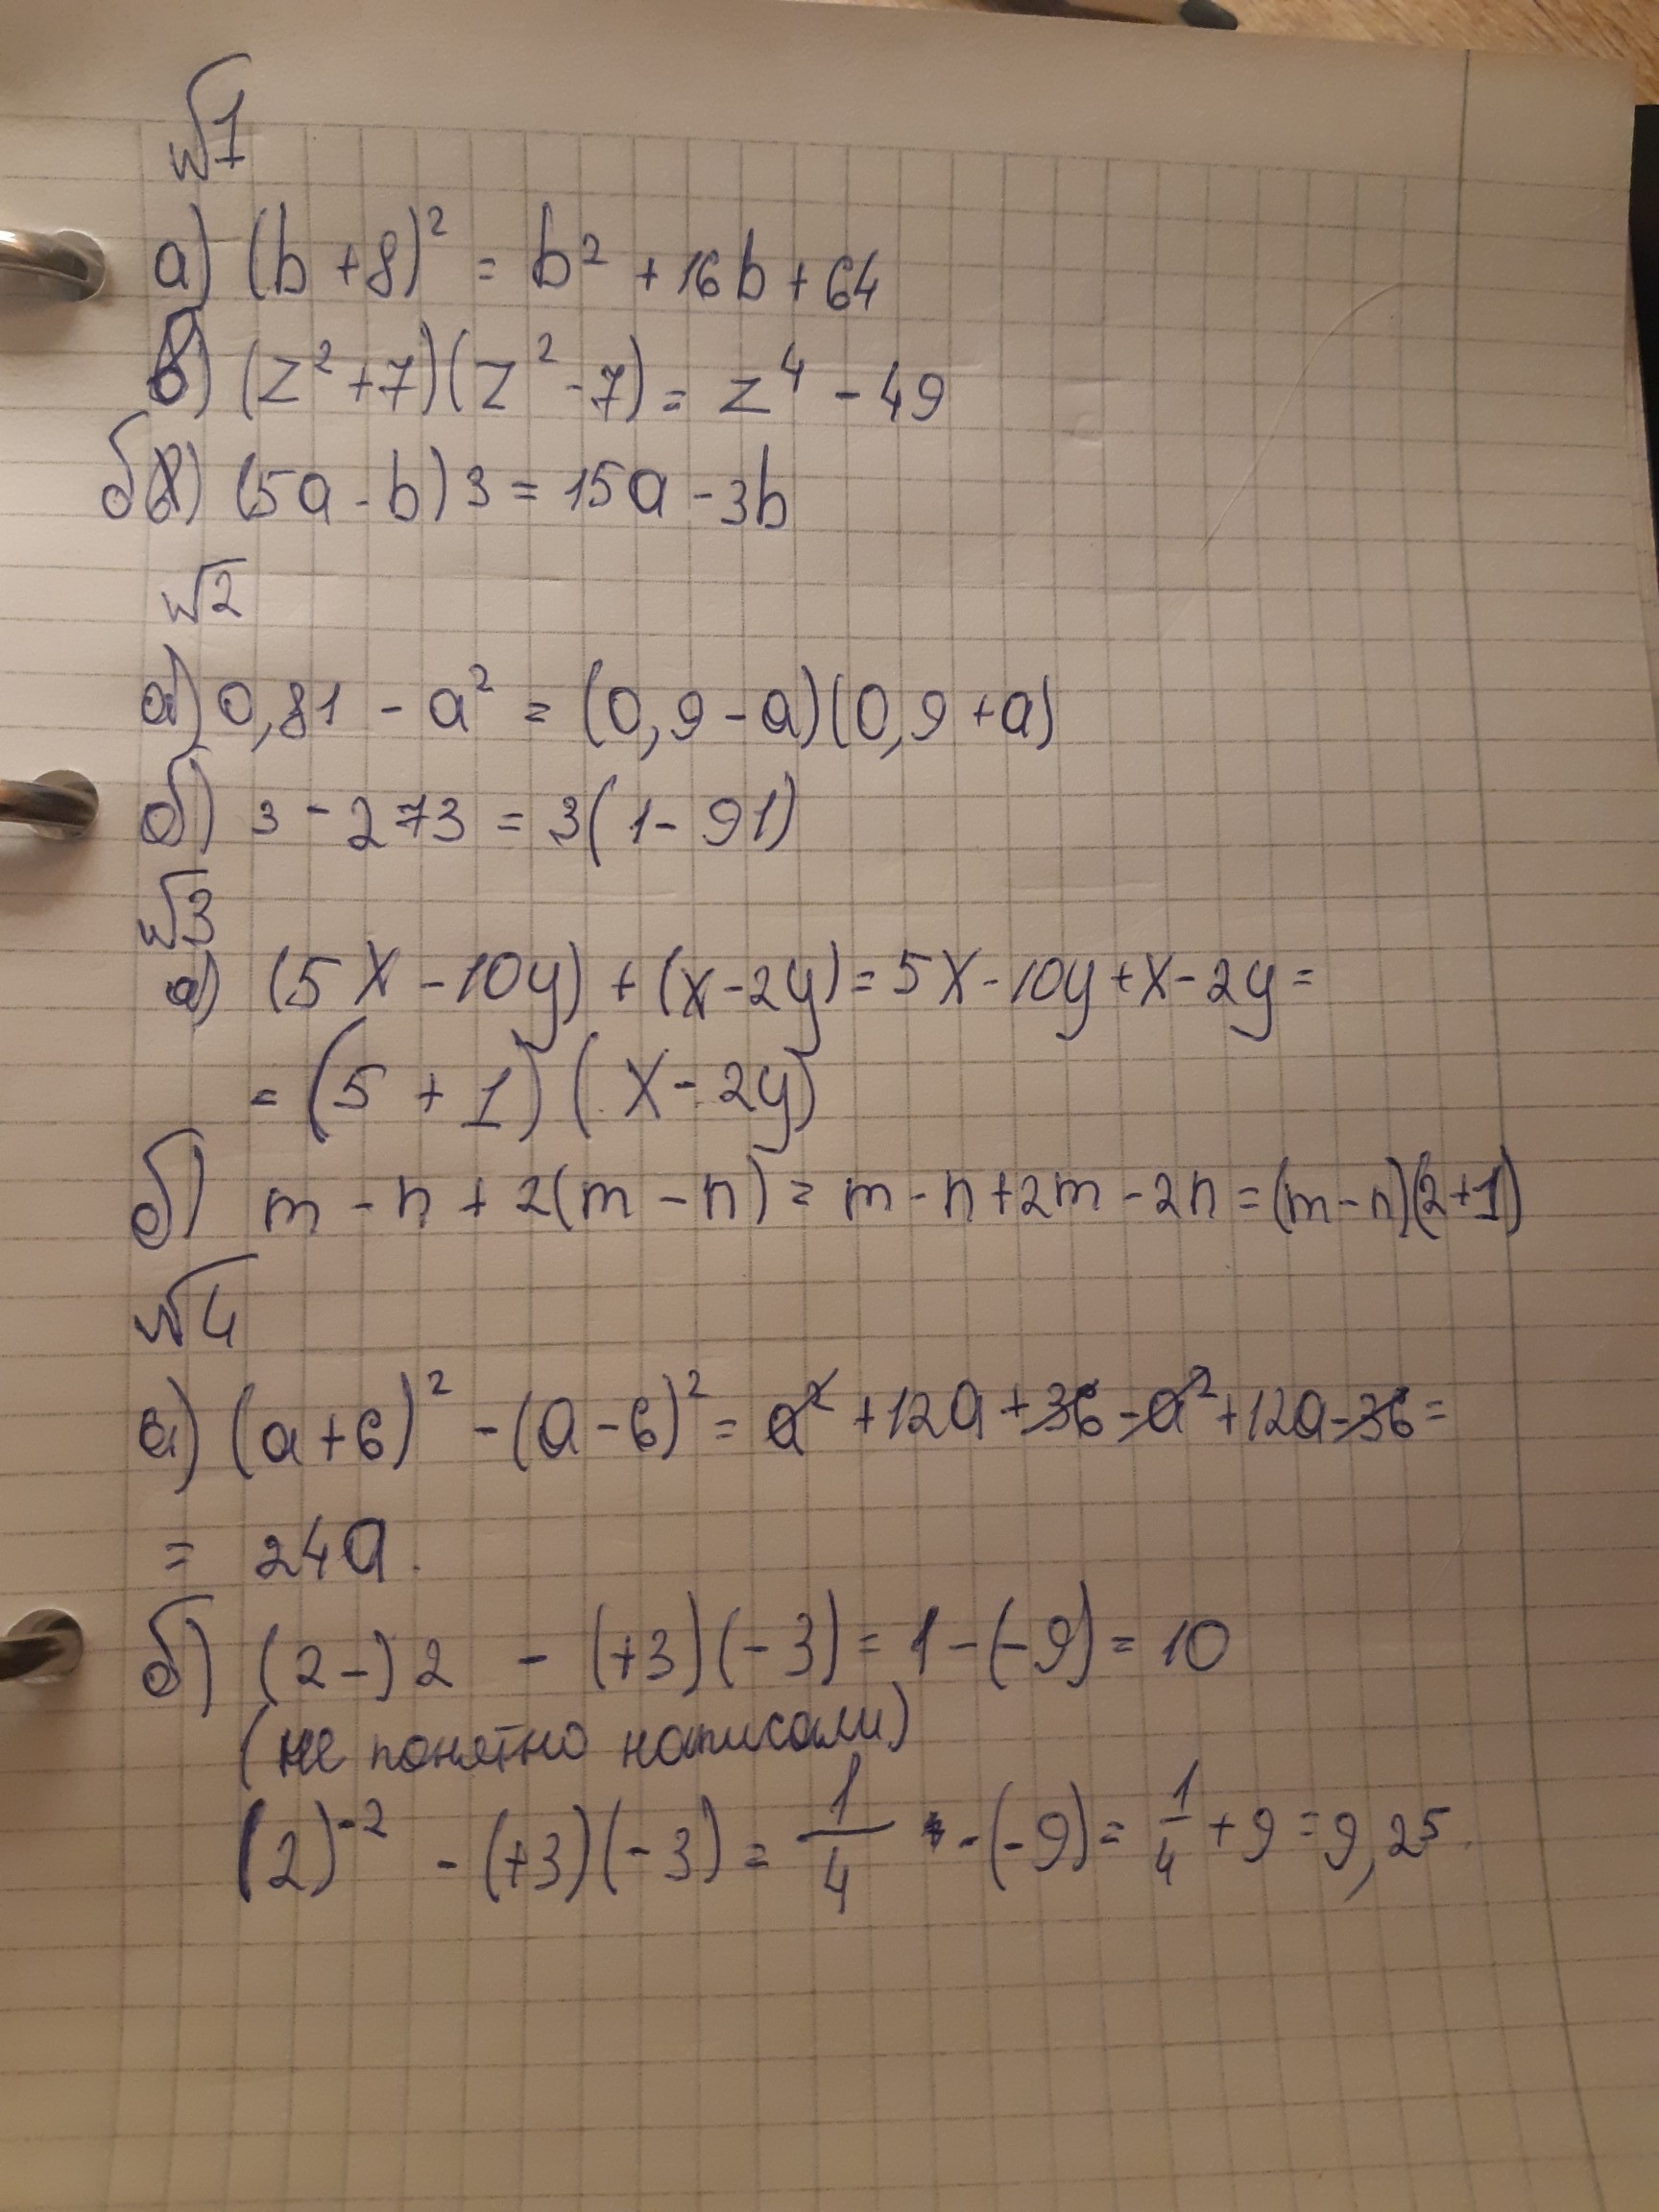 №1
а) (b+8)² = b² + 16b + 64
в) (z²+7)(z²-7) = z⁴ - 49
б) (5a - b) 3 = 15a - 3b
№2
а) 0,81 - a² = (0,9 - a)(0,9 + a)
б) 3 - 273 = 3(1 - 91)
№3
а) (5x - 10y) + (x - 2y) = 5x - 10y + x - 2y =
= (5 + 1) (x - 2y)
б) m - n + 2(m - n) = m - n + 2m - 2n = (m - n)(2+1)
№4
а) (a+6)² - (a - 6)² = a² + 12a + 36 - a² + 12a - 36 =
= 24a.
б) (2 -) 2 - (+3)(-3) = 1 - (-9) = 10
(не понятно написали)
(2)⁻² - (+3)(-3) = 1/4 - (-9) = 1/4 + 9 = 9,25.